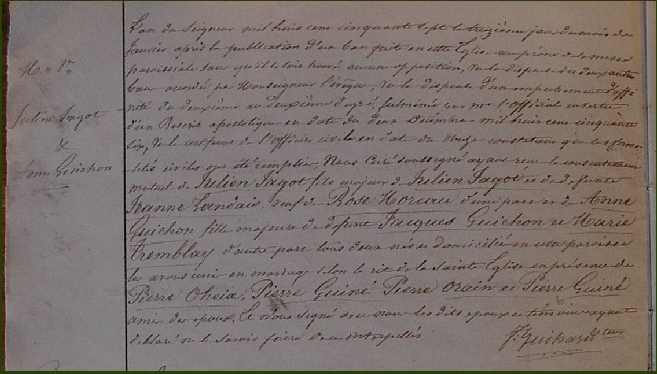 L'an du Seigneur mil huit cent cinquante sept le treizième jour du mois de
Janvier après la publication d'un ban fait en cette Eglise au prône de la messe
paroissiale sans qu'il se soit trouvé aucune opposition, Vu la dispense des deux autres
M. 1er
bans accordée par Monseigneur l'évêque, Vu la dispense d'un empêchement d'affi
nité du deuxième au deuxième degré, fulminée par Mr l'Official en vertu
Julien Jagot
d'un Rescrit apostolique en date du deux Décembre mil huit cent cinquante
&
six, Vu le certificat de l'officier civil en date du onze constatant que les forma
Anne Guichon
lités civiles ont été remplies, Nous Curé soussigné ayant reçu le consentement
mutuel de Julien Jagot fils majeur de Julien Jagot et de défunte
Jeanne Landais, veuf de Rose Moreau d'une part et de Anne
Guichon fille majeure de défunt Jacques Guichon et Marie
Tremblay d'autre part tous deux nés et domiciliés en cette paroisse
les avons uni en mariage selon le rit de la Sainte Eglise en présence de
Pierre Oheix, Pierre Guiné Pierre Orain et Pierre Guiné
amis des époux. Le Nous signé avec nous les dits époux et témoins ayant
déclaré ne le savoir faire de ce interpellés
J. Guihard